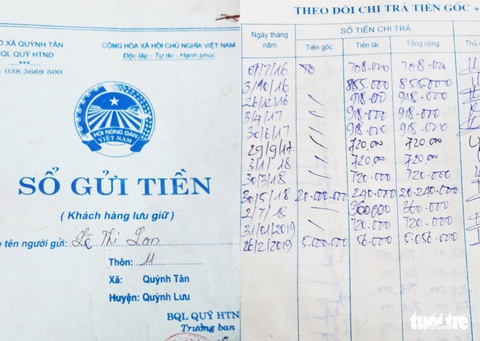 O XÃ QUỲNH TÂN
BQL QUỸ HTND
: 038.3669 500
CỘNG HÒA XÃ HỘI CHỦ NGHĨA VIỆT NAM
Độc lập - Tự do - Hạnh phúc
HỘI NÔNG DÂN
VIỆT NAM
SỔ GỬI TIỀN
( Khách hàng lưu giữ )
tên người gửi: Lê Thị Lan
Thôn: 11
Xã: Quỳnh Tân
Huyện: Quỳnh Lưu
BQL QUỸ HTN
Trưởng ban
THEO DÕI CHI TRẢ TIỀN GỐC +
Ngày tháng năm
SỐ TIỀN CHI TRẢ
Tiền gốc Tiền lãi Tổng cộng
7/16 708.000 708.000
3/10/16 855.000 855.000
26/12/16 918.000 918.000
3/4/17 918.000 918.000
30/6/17 918.000 918.000
29/9/17 720.000 720.000
3/1/18 720.000 720.000
30/3/18 720.000 720.000
30/5/18 20.000.000 240.000 20.240.000
2/7/18 360000 360.000
31/01/2019 720.000 720.000
26/2/2019 5.000.000 56.000 5.056.000
tuổi trẻ